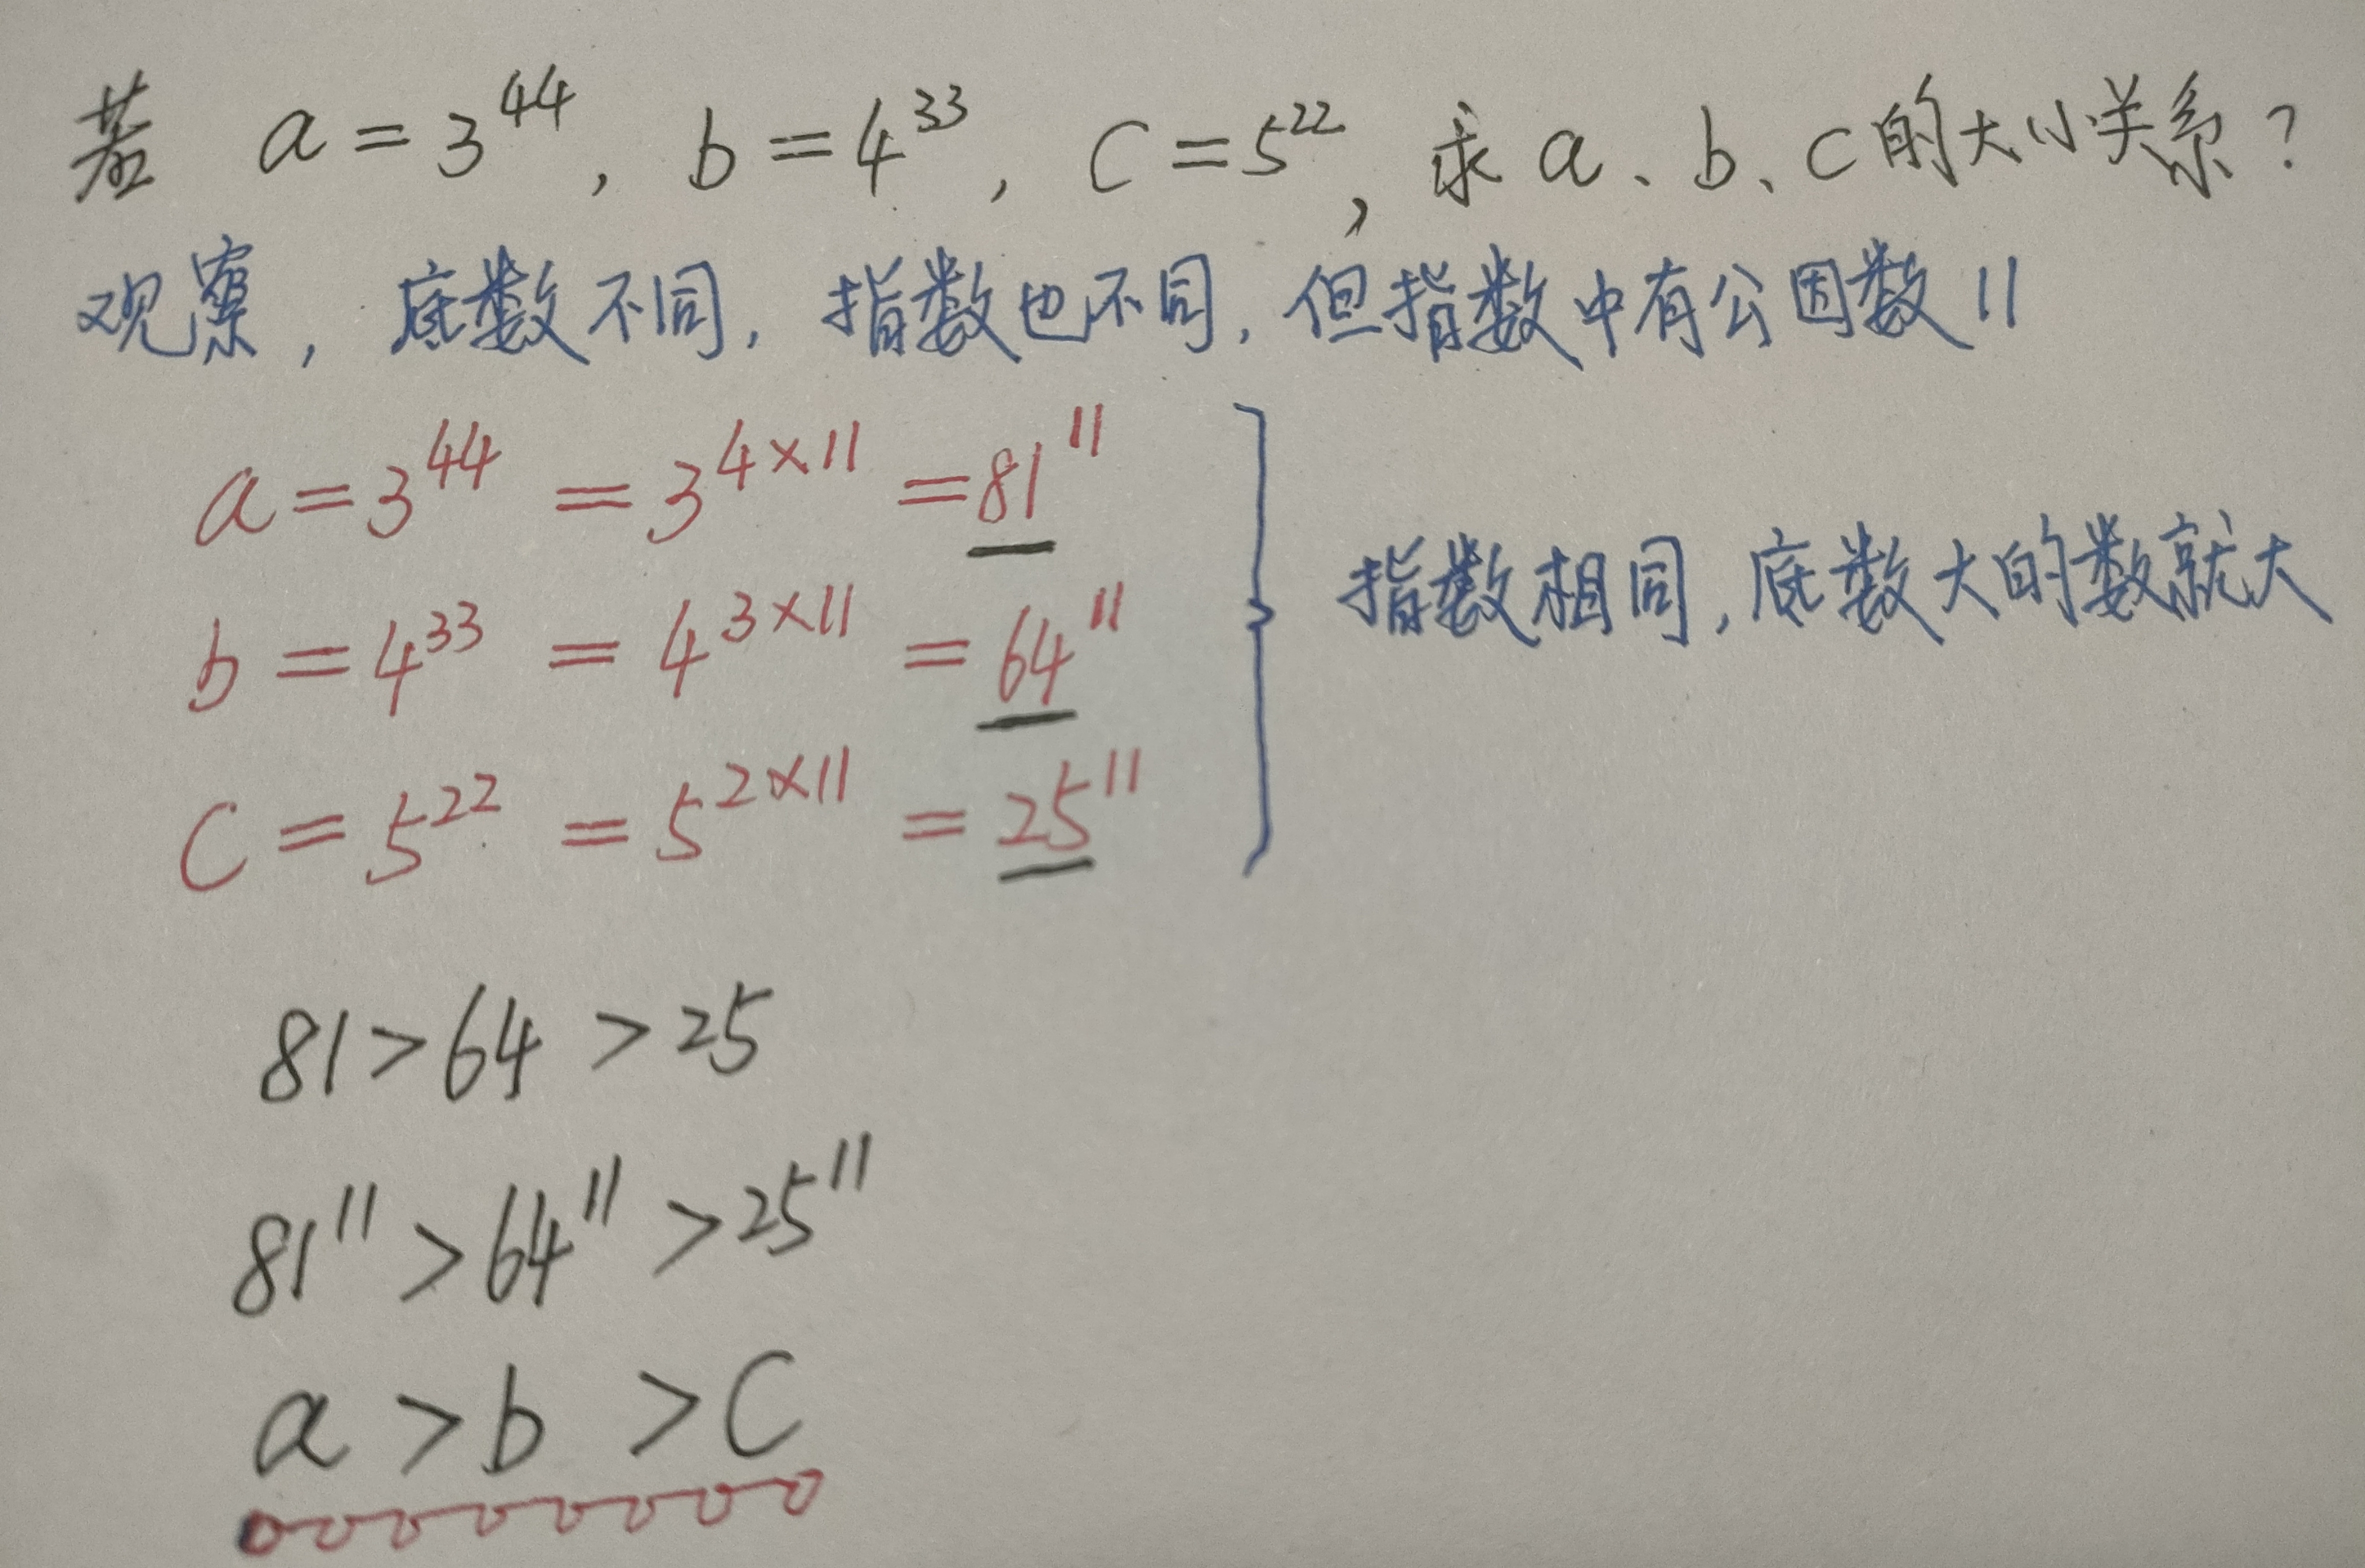 若 a=3⁴⁴, b=4³³, c=5²², 求a、b、c的大小关系?
观察, 底数不同, 指数也不同, 但指数中有公因数11
a=3⁴⁴=3⁴ˣ¹¹=81¹¹
b=4³³=4³ˣ¹¹=64¹¹
c=5²²=5²ˣ¹¹=25¹¹
指数相同, 底数大的数就大
81>64>25
81¹¹>64¹¹>25¹¹
a>b>c